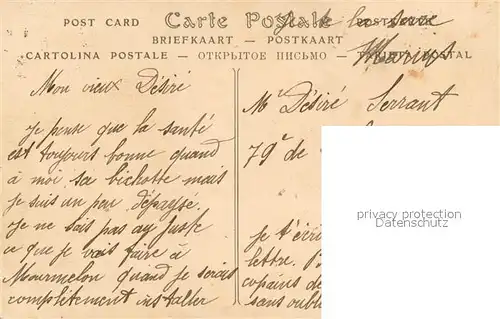 POST CARD Carte Postale
BRIEFKAART — POSTKAART
CARTOLINA POSTALE — ОТКРЫТОЕ ПИСЬМО — POSTAL
Mon vieux Désiré
Je pense que la santé
est toujours bonne quand
à moi sa bichotte mais
je suis un peu dépaysé.
Je ne sais pas au juste
ce que je vais faire à
Mourmelon quand je serais
complètement installer
Mr Désiré Serrant
79e de
je t'écri
lettre.
copains de
sans oubl
privacy protection
Datenschutz